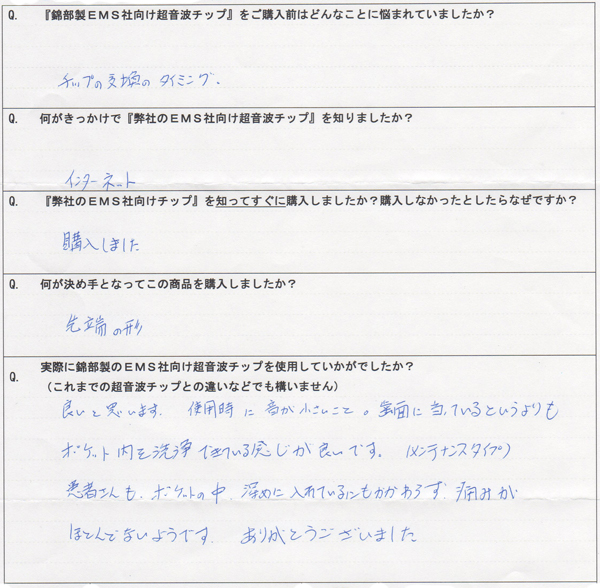 Q. 『錦部製EMS社向け超音波チップ』をご購入前はどんなことに悩まれていましたか？
チップの交換のタイミング.
Q. 何がきっかけで『弊社のEMS社向け超音波チップ』を知りましたか？
インターネット
Q. 『弊社のEMS社向けチップ』を知ってすぐに購入しましたか？購入しなかったとしたらなぜですか？
購入しました
Q. 何が決め手となってこの商品を購入しましたか？
先端の形
Q. 実際に錦部製のEMS社向け超音波チップを使用していかがでしたか？
（これまでの超音波チップとの違いなどでも構いません）
良いと思います. 使用時に音が小さいこと。歯面に当っているというよりも
ポケット内を洗浄できている感じが良いです。（メンテナンスタイプ）
患者さんも、ポケットの中、深めに入れているにもかかわらず、痛みが
ほとんどないようです. ありがとうございました